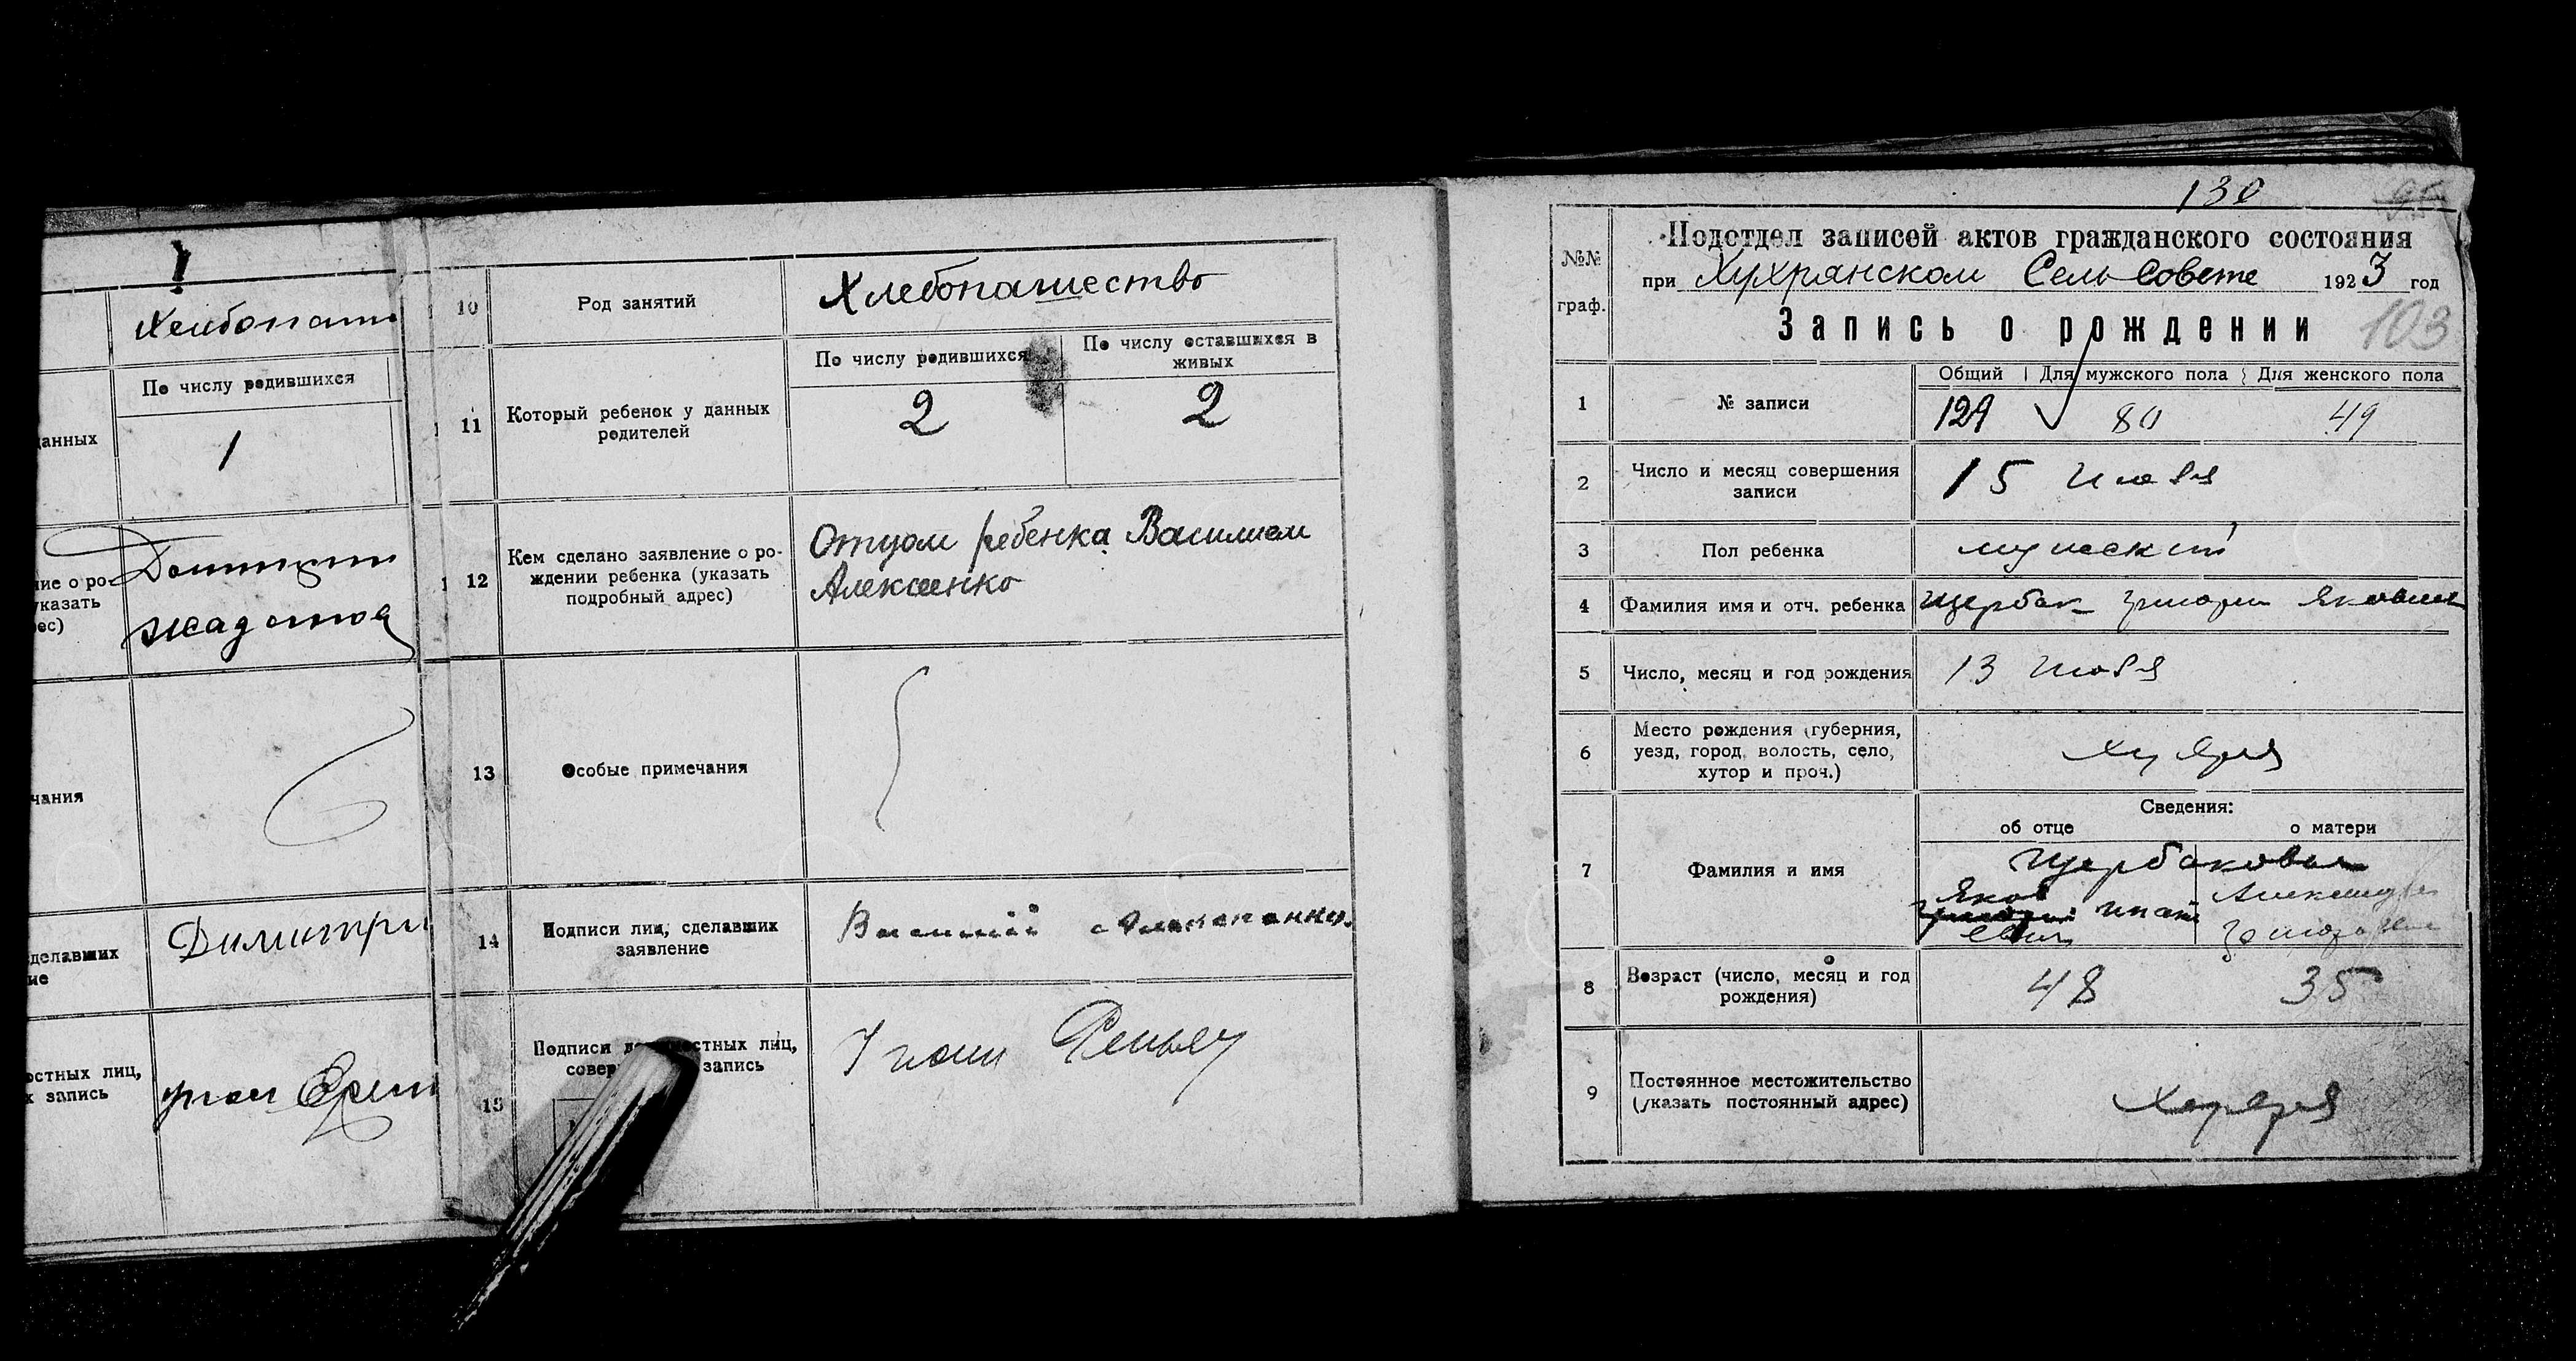 !
По числу родившихся
1
данных
ние о ро-
указать
ес)
Жадонов
чания
сделавших
ие
Димитри
остных лиц,
х запись
10 Род занятий Хлебопашество
11 Который ребенок у данных
родителей
По числу родившихся По числу оставшихся в
живых
2 2
12 Кем сделано заявление о ро-
ждении ребенка (указать
подробный адрес)
Отцом ребенка Василием
Алексеенко
13 Особые примечания
14 Подписи лиц, сделавших
заявление
Василий
15 Подписи должностных лиц,
запись
130
95
№№
граф.
Подотдел записей актов гражданского состояния
при Хухрянском Сель Совете 1923 год
Запись о рождении 103
Общий Для мужского пола Для женского пола
1 № записи 129 80 49
2 Число и месяц совершения
записи
15 Июля
3 Пол ребенка мужеский
4 Фамилия имя и отч. ребенка Щербак Григори Яковлев
5 Число, месяц и год рождения 13 Июля
6 Место рождения (губерния,
уезд, город, волость, село,
хутор и проч.)
Сведения:
об отце о матери
7 Фамилия и имя
Щербаковы
Яков
8 Возраст (число, месяц и год
рождения)
48 35
9 Постоянное местожительство
(указать постоянный адрес)